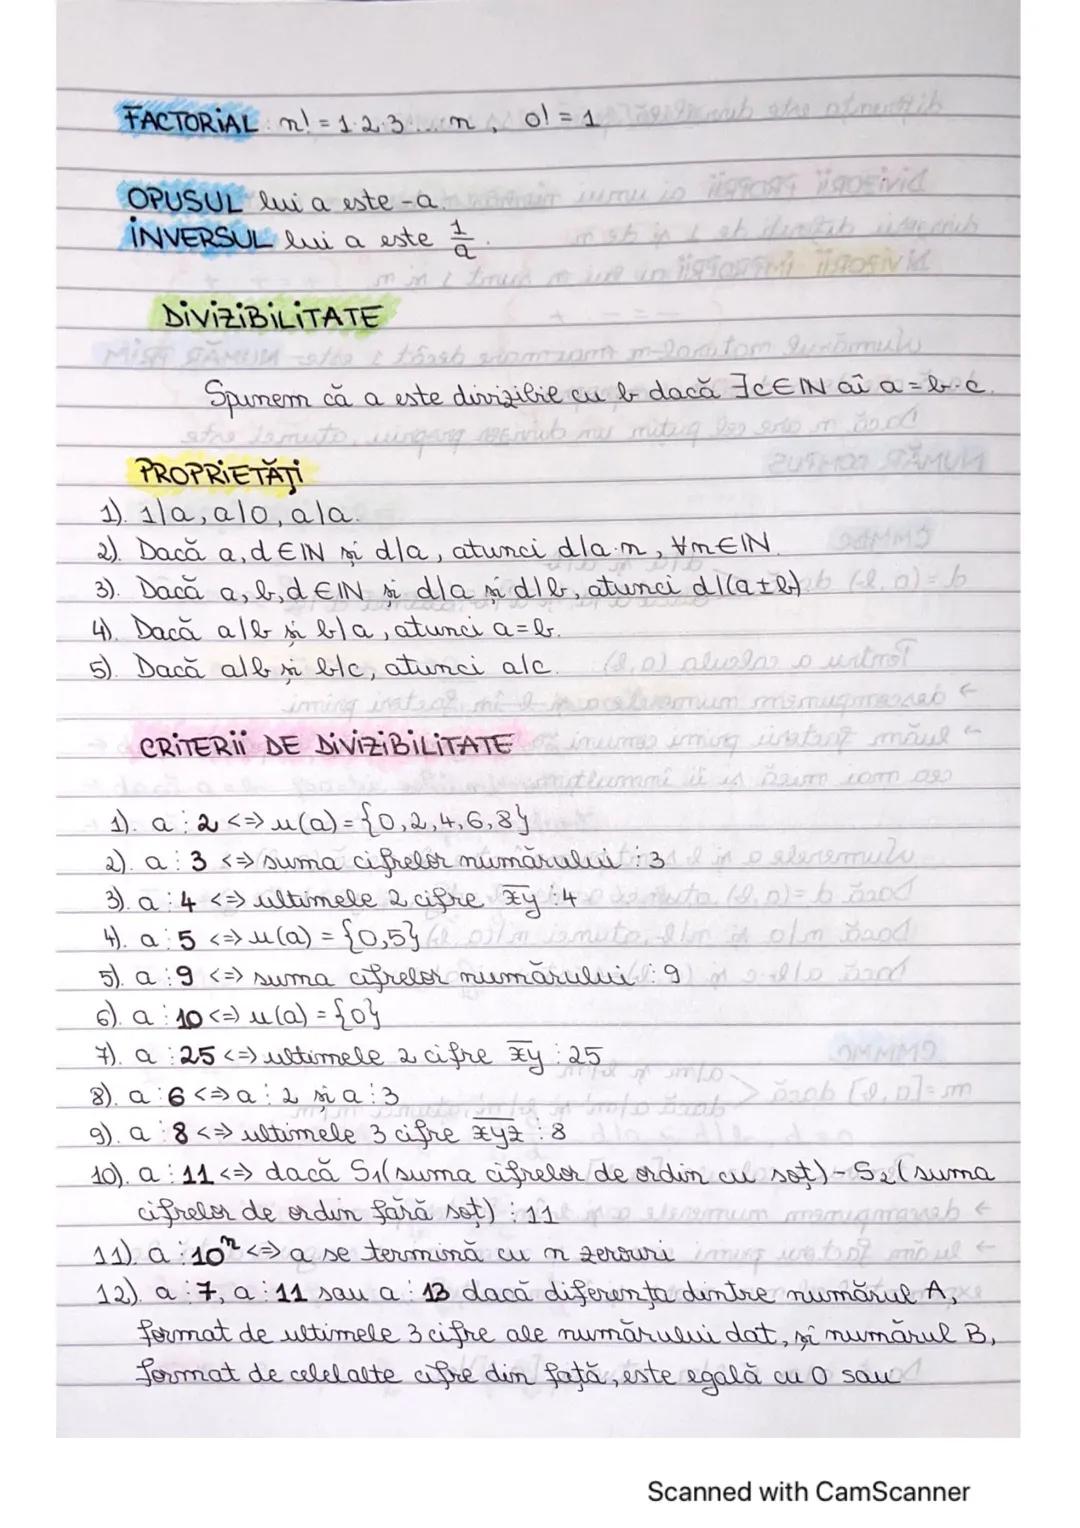 FACTORIAL: n! = 1·2·3...·n, 0! = 1
OPUSUL lui a este -a.
INVERSUL lui a este 1/a.
DIVIZIBILITATE
Spunem că a este divizibil cu b dacă ∃c∈ℕ aî a = b·c.
PROPRIETĂȚI
1). 1|a, a|0, a|a.
2). Dacă a, d∈ℕ și d|a, atunci d|a·n, ∀n∈ℕ.
3). Dacă a, b, d∈ℕ și d|a și d|b, atunci d|(a±b).
4). Dacă a|b și b|a, atunci a=b.
5). Dacă a|b și b|c, atunci a|c.
CRITERII DE DIVIZIBILITATE
1). a⋮2 <=> u(a)={0,2,4,6,8}
2). a⋮3 <=> suma cifrelor numărului ⋮3
3). a⋮4 <=> ultimele 2 cifre x̅y̅ ⋮4
4). a⋮5 <=> u(a) = {0,5}
5). a⋮9 <=> suma cifrelor numărului ⋮9
6). a⋮10 <=> u(a) = {0}
7). a⋮25 <=> ultimele 2 cifre x̅y̅ ⋮25
8). a⋮6 <=> a⋮2 și a⋮3
9). a⋮8 <=> ultimele 3 cifre x̅y̅z̅ ⋮8
10). a⋮11 <=> dacă S₁(suma cifrelor de ordin cu soț) - S₂(suma
cifrelor de ordin fără soț) ⋮11
11). a⋮10ⁿ <=> a se termină cu n zerouri
12). a⋮7, a⋮11 sau a⋮13 dacă diferența dintre numărul A,
format de ultimele 3 cifre ale numărului dat, și numărul B,
format de celelalte cifre din față, este egală cu 0 sau
Scanned with CamScanner